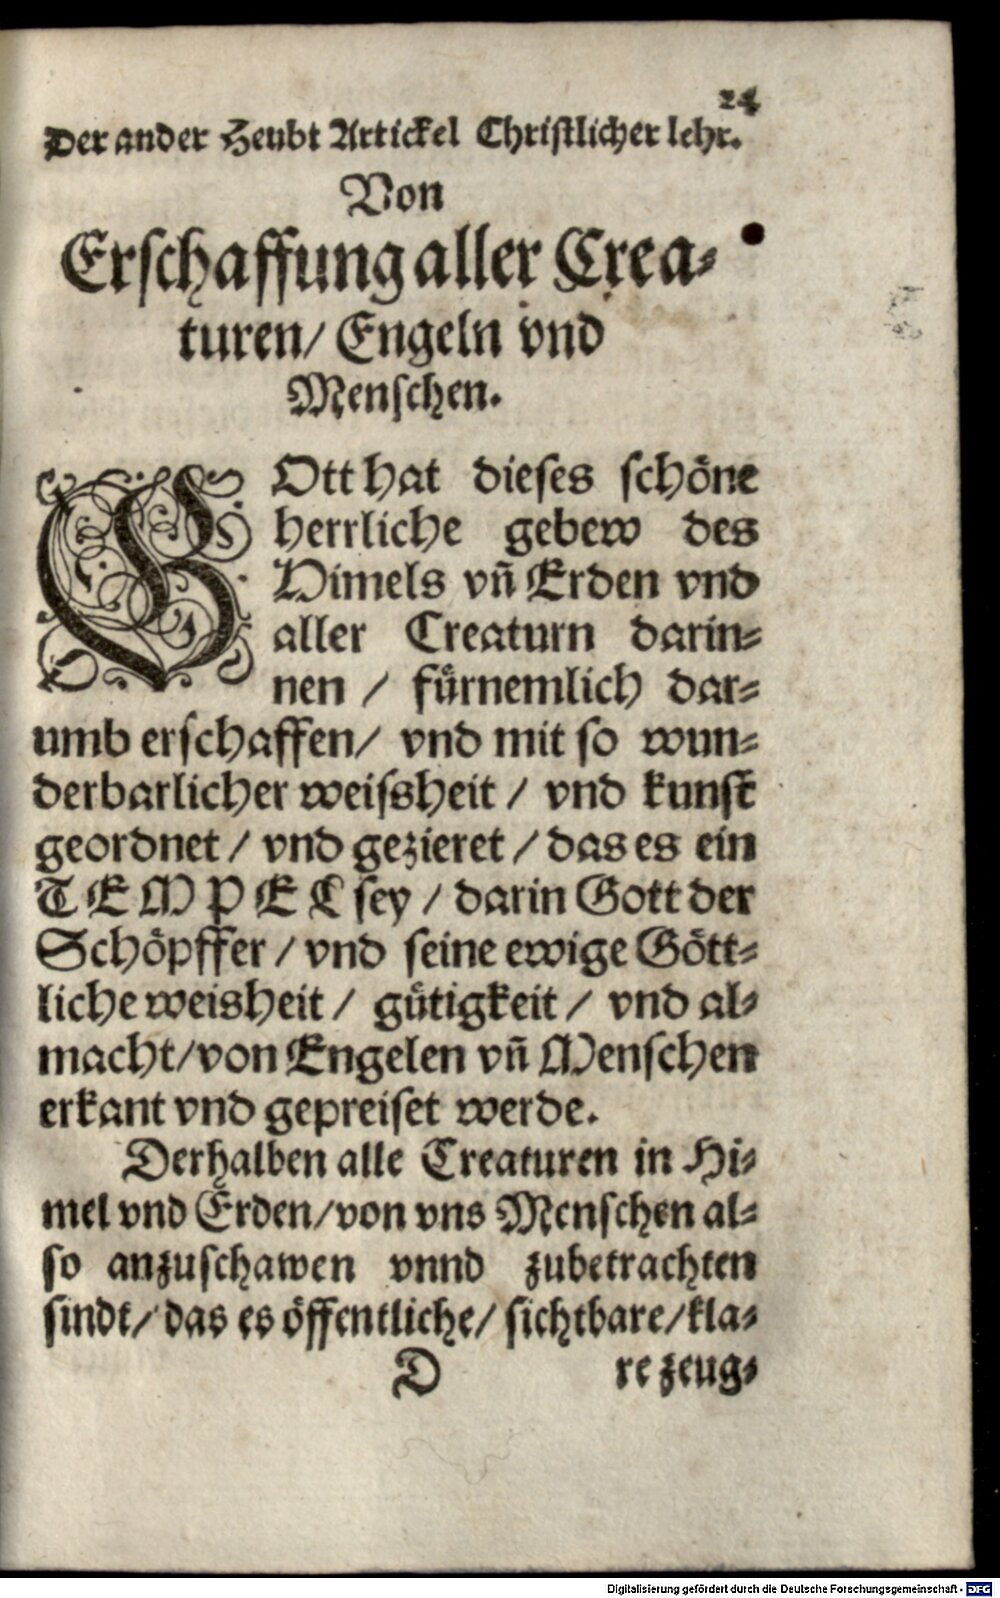 24
Der ander Heubt Artickel Christlicher lehr.
Von
Erschaffung aller Crea⸗
turen/ Engeln vnd
Menschen.
GOtt hat dieses schöne
herrliche gebew des
Himels vñ Erden vnd
aller Creaturn darin⸗
nen / fürnemlich dar⸗
umb erschaffen/ vnd mit so wun⸗
derbarlicher weissheit / vnd kunst
geordnet / vnd gezieret / das es ein
TEMPEL sey / darin Gott der
Schöpffer / vnd seine ewige Gött⸗
liche weisheit / gütigkeit / vnd al⸗
macht/von Engelen vñ Menschen
erkant vnd gepreiset werde.
Derhalben alle Creaturen in Hi⸗
mel vnd Erden/von vns Menschen al⸗
so anzuschawen vnnd zubetrachten
sindt/ das es öffentliche/ sichtbare/kla⸗
D re zeug⸗
Digitalisierung gefördert durch die Deutsche Forschungsgemeinschaft - DFG